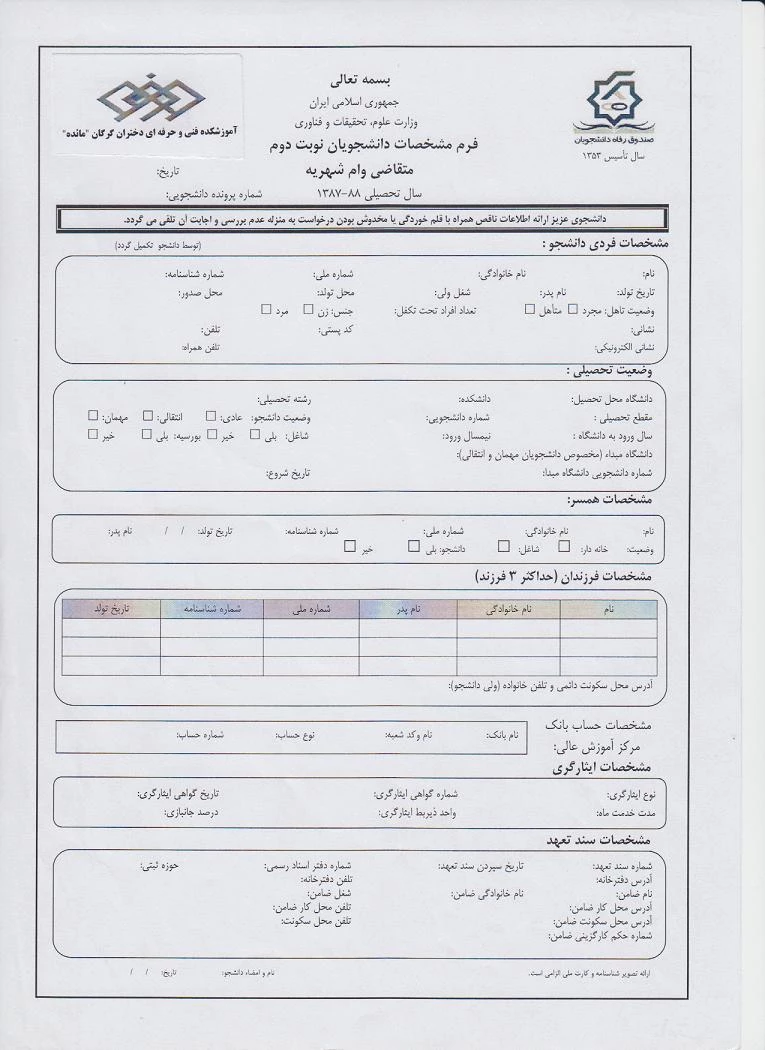 بسمه تعالی
جمهوری اسلامی ایران
وزارت علوم، تحقیقات و فناوری
فرم مشخصات دانشجویان نوبت دوم
متقاضی وام شهریه
سال تحصیلی ۸۸-۱۳۸۷
صندوق رفاه دانشجویان
سال تأسیس ۱۳۵۳
آموزشکده فنی و حرفه ای دختران گرگان "مائده"
تاریخ:
شماره پرونده دانشجویی:
دانشجوی عزیز ارائه اطلاعات ناقص همراه با قلم خوردگی یا مخدوش بودن درخواست به منزله عدم بررسی و اجابت آن تلقی می گردد.
مشخصات فردی دانشجو : (توسط دانشجو تکمیل گردد)
نام: نام خانوادگی: شماره ملی: شماره شناسنامه:
تاریخ تولد: نام پدر: شغل ولی: محل تولد: محل صدور:
وضعیت تاهل: مجرد □ متأهل □ تعداد افراد تحت تکفل: جنس: زن □ مرد □
نشانی: کد پستی: تلفن:
نشانی الکترونیکی: تلفن همراه:
وضعیت تحصیلی :
دانشگاه محل تحصیل: دانشکده: رشته تحصیلی:
مقطع تحصیلی : شماره دانشجویی: وضعیت دانشجو: عادی: □ انتقالی: □ مهمان: □
سال ورود به دانشگاه : نیمسال ورود: شاغل: بلی □ خیر □ بورسیه: بلی □ خیر □
دانشگاه مبداء (مخصوص دانشجویان مهمان و انتقالی):
شماره دانشجویی دانشگاه مبدا: تاریخ شروع:
مشخصات همسر:
نام: نام خانوادگی: شماره ملی: شماره شناسنامه: تاریخ تولد: / / نام پدر:
وضعیت: خانه دار: □ شاغل: □ دانشجو: بلی □ خیر □
مشخصات فرزندان (حداکثر ۳ فرزند)
نام نام خانوادگی نام پدر شماره ملی شماره شناسنامه تاریخ تولد
آدرس محل سکونت دائمی و تلفن خانواده (ولی دانشجو):
مشخصات حساب بانک
مرکز آموزش عالی:
نام بانک: نام وکد شعبه: نوع حساب: شماره حساب:
مشخصات ایثارگری
نوع ایثارگری: شماره گواهی ایثارگری: تاریخ گواهی ایثارگری:
مدت خدمت ماه: واحد ذیربط ایثارگری: درصد جانبازی:
مشخصات سند تعهد
شماره سند تعهد: تاریخ سپردن سند تعهد: شماره دفتر اسناد رسمی: حوزه ثبتی:
آدرس دفترخانه: تلفن دفترخانه:
نام ضامن: نام خانوادگی ضامن: شغل ضامن:
آدرس محل کار ضامن: تلفن محل کار ضامن:
آدرس محل سکونت ضامن: تلفن محل سکونت:
شماره حکم کارگزینی ضامن:
ارائه تصویر شناسنامه و کارت ملی الزامی است. نام و امضاء دانشجو: تاریخ: / /